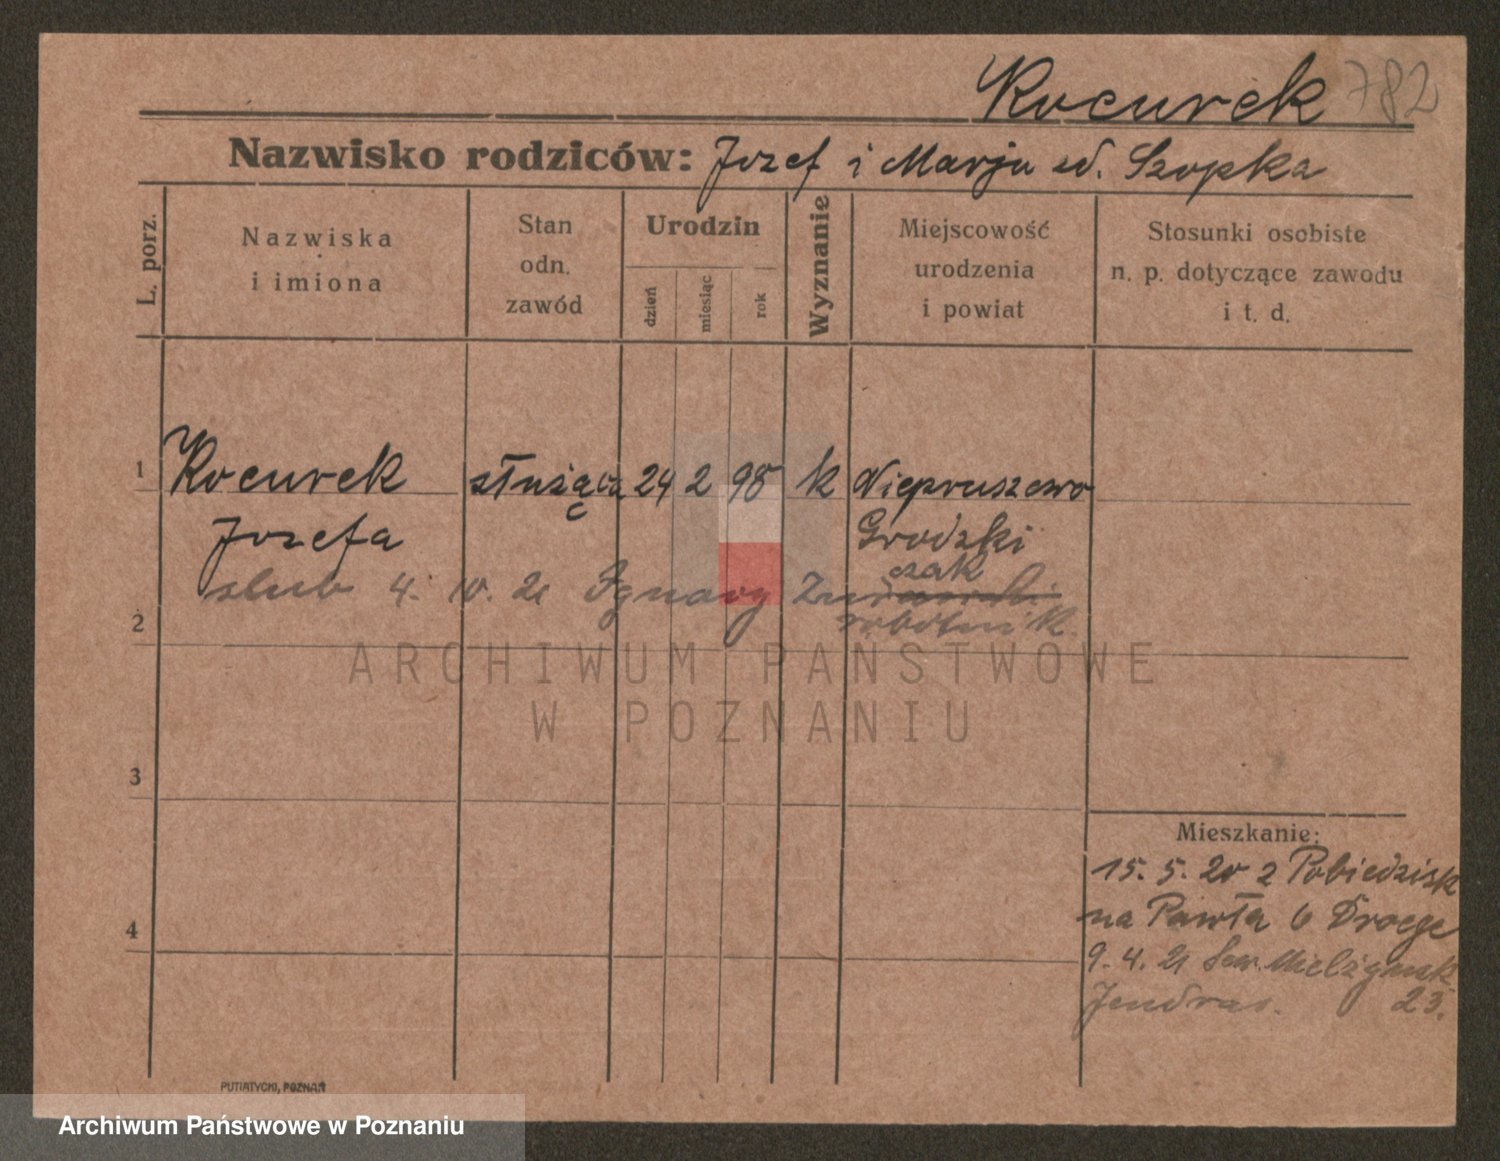 Kocurek 782
Nazwisko rodziców: Jozef i Marja zd. Szopka
L. porz.
Nazwiska
i imiona
Stan
odn.
zawód
Urodzin
dzień
miesiąc
rok
Wyznanie
Miejscowość
urodzenia
i powiat
Stosunki osobiste
n. p. dotyczące zawodu
i t. d.
1 Kocurek służąca 24 2 98 k Niepruszewo
Jozefa Grodzki
czak
ślub 4. 10. 21 Ignacy Żurawski
2 robotnik
3
Mieszkanie:
15. 5. 20 z Pobiedzisk
na Pawła 6 Droege
4
9. 4. 21 Sew. Mielżyńsk
Jendras. 23.
PUTIATYCKI, POZNAŃ
ARCHIWUM PAŃSTWOWE
W POZNANIU
Archiwum Państwowe w Poznaniu